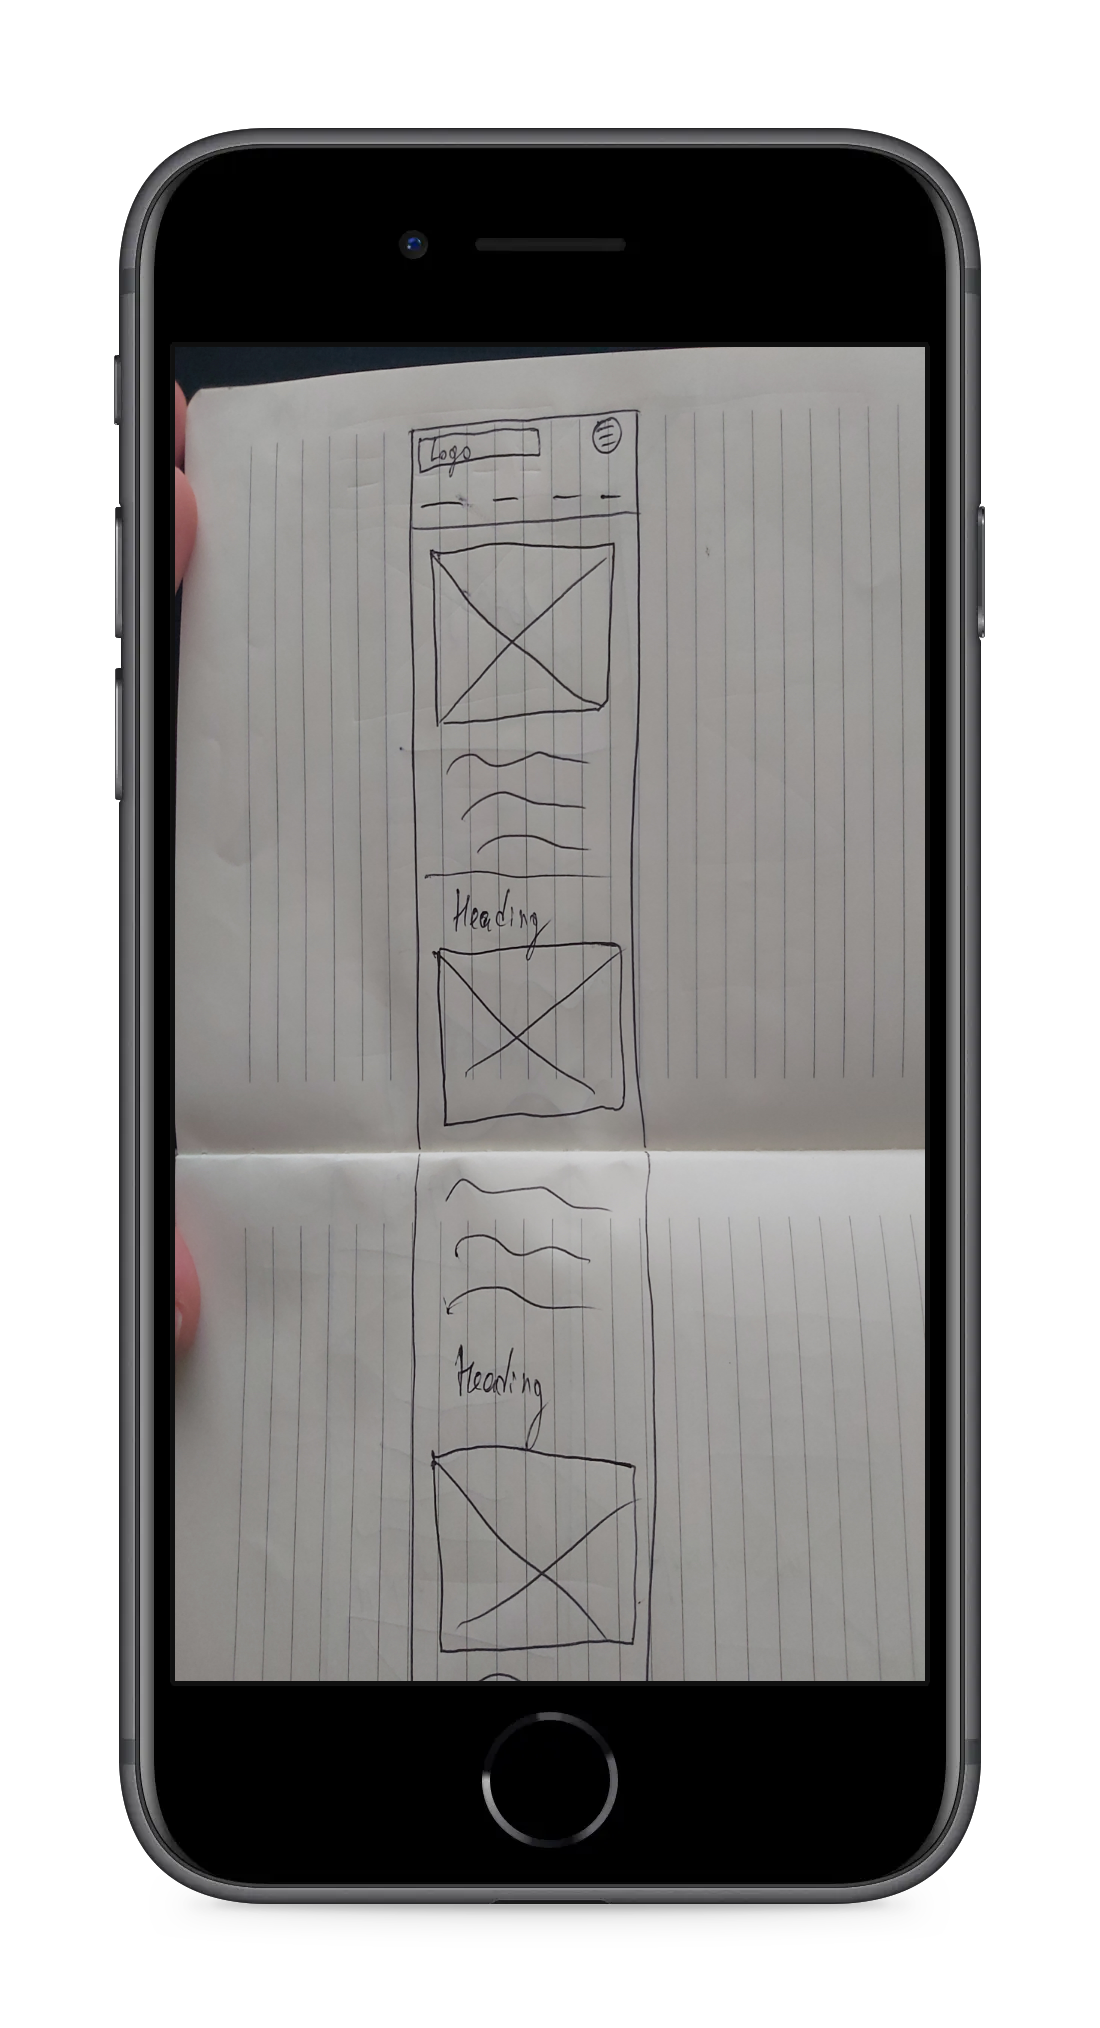 Logo
Heading
Heading